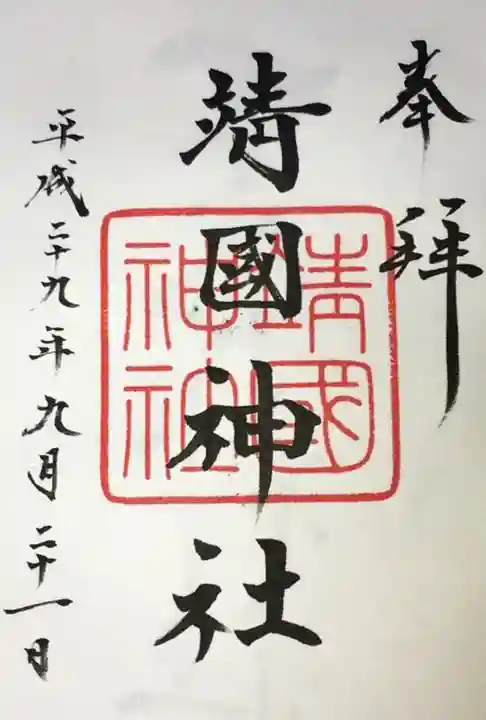 奉拝
靖國神社
靖國
神社
平成二十九年九月二十一日